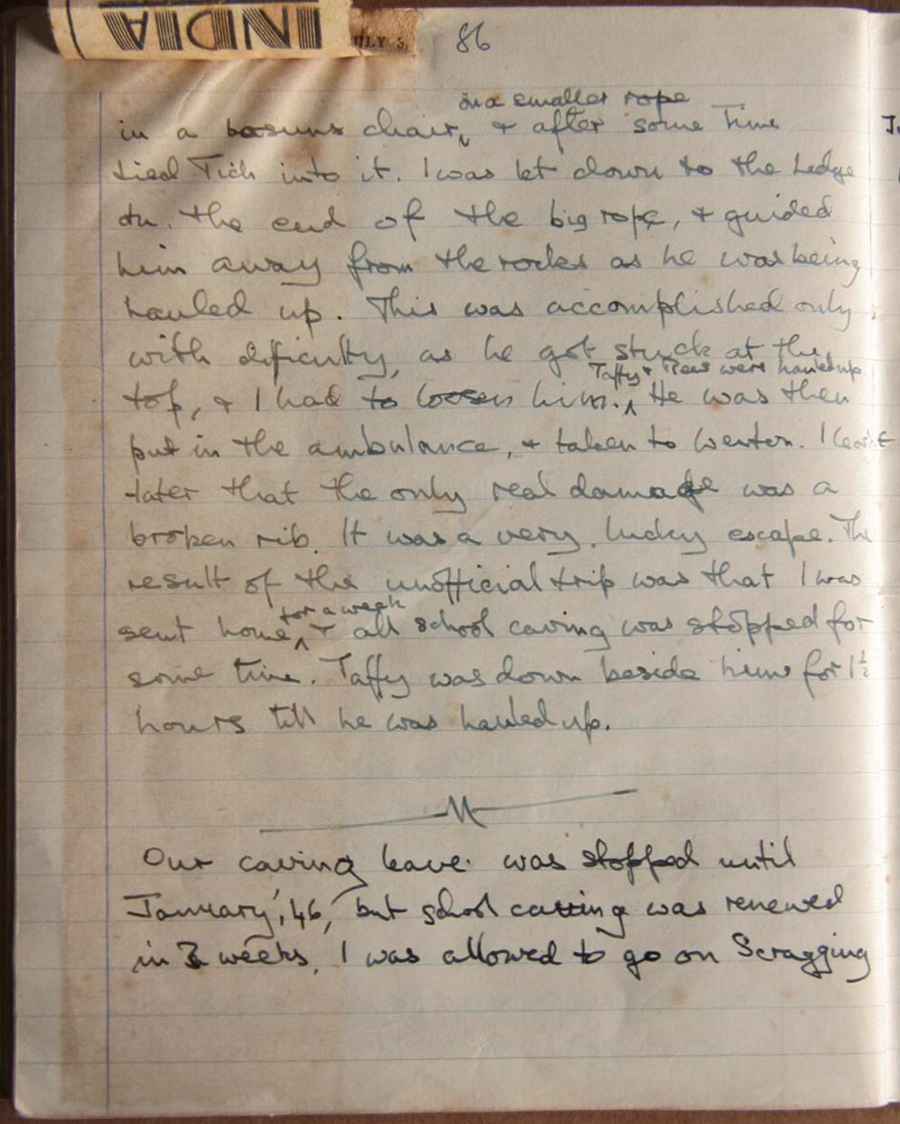 INDIA
JULY 3,
86
on a smaller rope
in a bosuns chair, & after some time
tied Tich into it. I was let down to the Ledge
on the end of the big rope, & guided
him away from the rocks as he was being
hauled up. This was accomplished only
with difficulty, as he got stuck at the
Taffy & were hauled up
top, & I had to loosen him. He was then
put in the ambulance, & taken to Weston. I learnt
later that the only real damage was a
broken rib. It was a very lucky escape. The
result of the unofficial trip was that I was
for a week
sent home, & all school caving was stopped for
some time. Taffy was down beside him for 1½
hours till he was hauled up.
Our caving leave was stopped until
January, '46, but school caving was renewed
in 3 weeks. I was allowed to go on Scragging